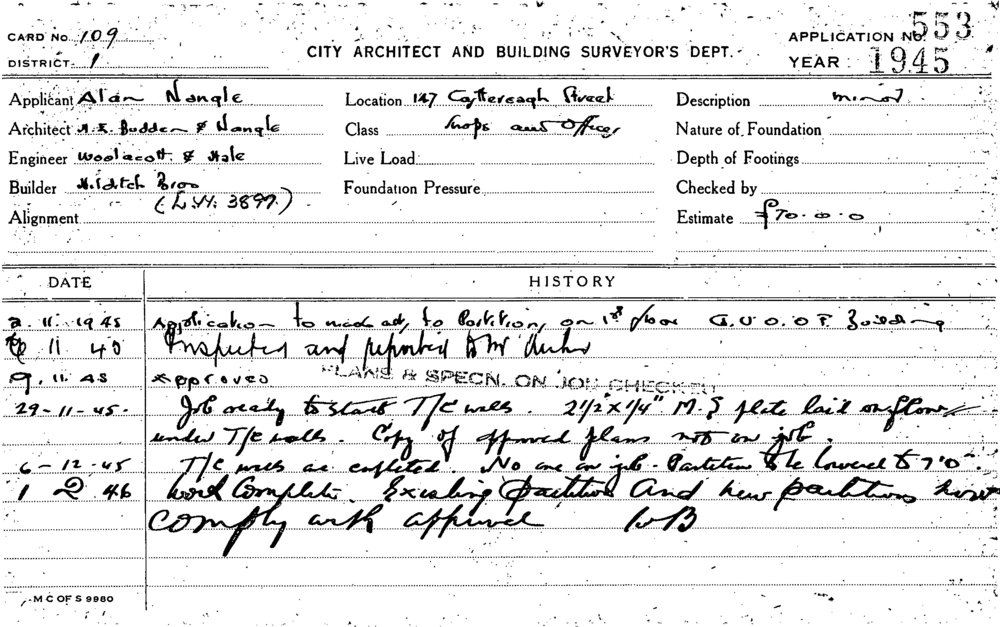 CARD No. 109
DISTRICT 1
CITY ARCHITECT AND BUILDING SURVEYOR'S DEPT.
APPLICATION No. 553
YEAR 1945
Applicant Alan Nangle
Location 147 Castlereagh Street
Description minor
Architect H.E. Budden & Nangle
Class Shops and Offices
Nature of Foundation
Engineer Woolacott & Hale
Live Load
Depth of Footings
Builder Hilditch Bros
Foundation Pressure
Checked by
(L.H. 3897.)
Alignment
Estimate £70.0.0
DATE HISTORY
2.11.1945 Application to to Partition, on 1st floor G.U.O.O.F. Building
6 11 45 Inspected and reported to Mr
9.11.45 Approved PLANS & SPECN. ON JOB CHECKED
29-11-45. Job ready to start T/C walls. 2½" x ¼" M.S plate laid on floor
under T/C walls. Copy of approved plans not on job.
6-12-45 T/C walls are completed. No one on job. Partition to be lowered to 7'0".
1 2 46 Work Complete. Existing partition And new partitions now
comply with approval WB
M C OF S 9980